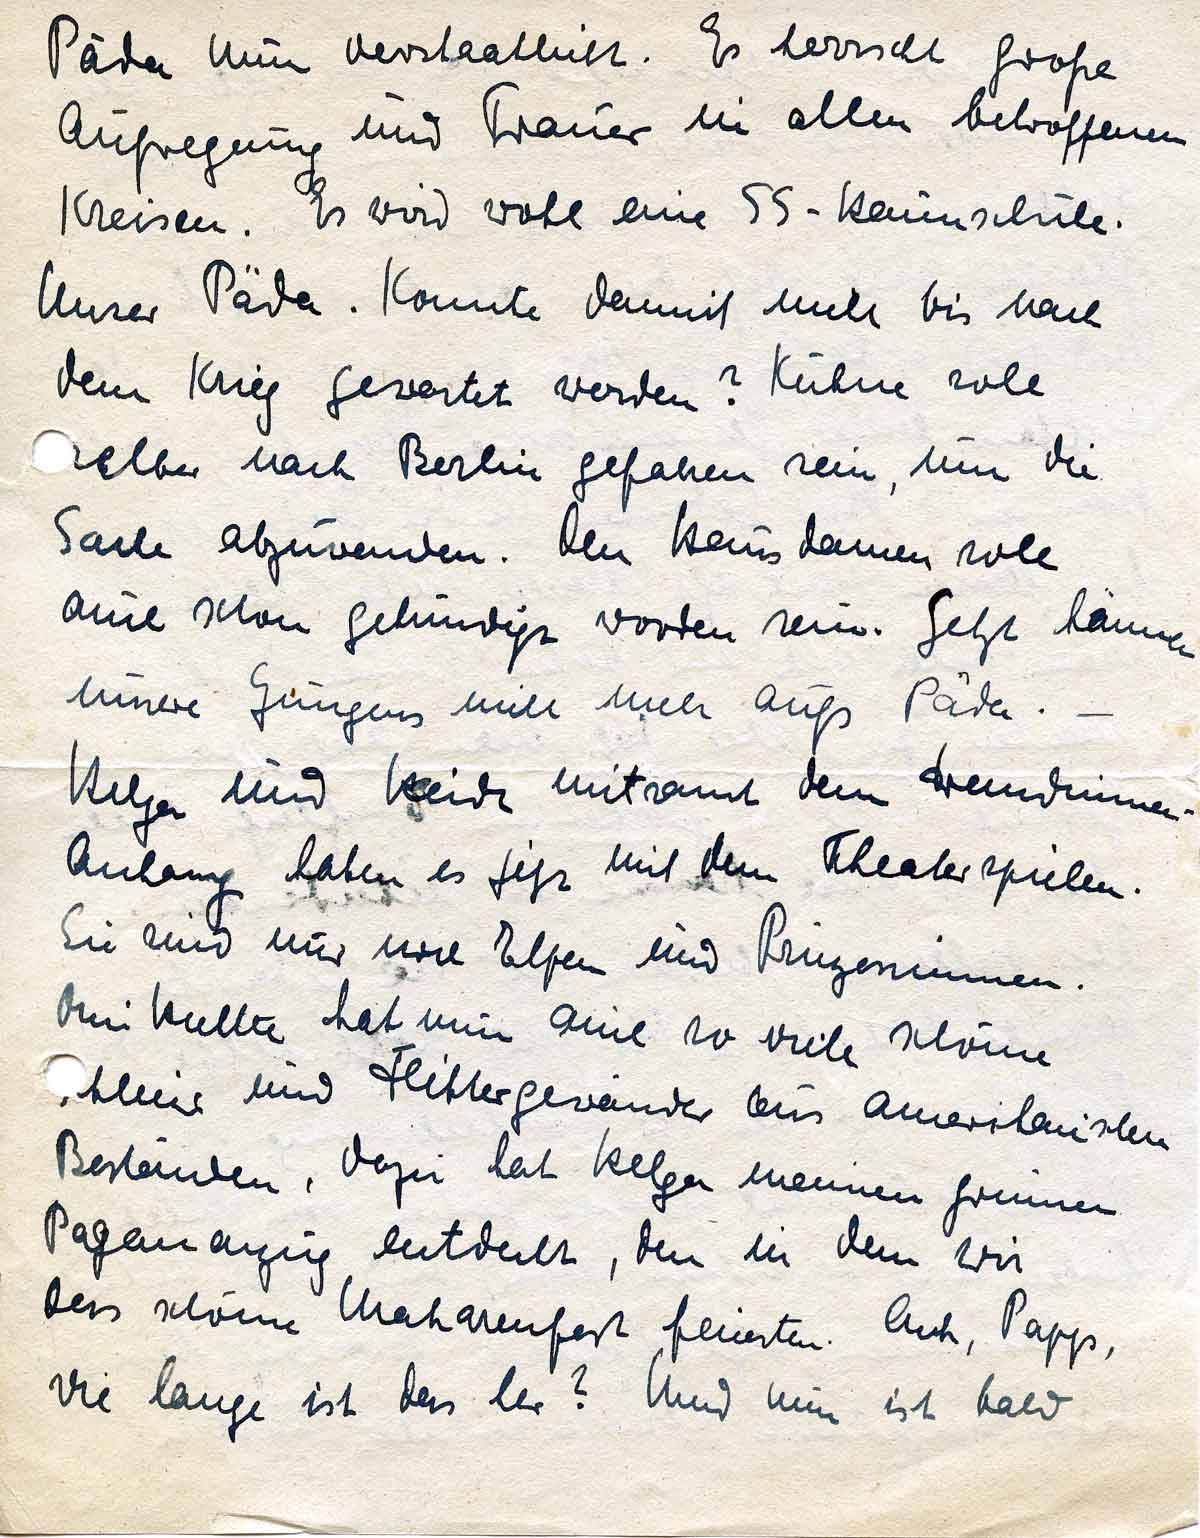 Päda nun verstaatlicht. Es herrscht große
Aufregung und Trauer in allen betroffenen
Kreisen. Es wird wohl eine SS-Heimschule.
Unser Päda. Konnte damit nicht bis nach
dem Krieg gewartet werden? Kühne soll
selber nach Berlin gefahren sein, um die
Sache abzuwenden. Den Hausdamen soll
auch schon gekündigt worden sein. Jetzt können
unsere Jungens nicht mehr aufs Päda. —
Helga und Heidi mitsamt dem
Anhang haben es jetzt mit dem Theaterspielen.
Sie sind nur noch Elfen und Prinzessinnen.
hat nun auch so viele schöne
Schleier und Flittergewänder aus amerikanischen
Beständen, dazu hat Helga meinen grünen
Pagenanzug entdeckt, den in dem wir
das schöne feierten. Ach, Papps,
wie lange ist das her? Und nun ist bald